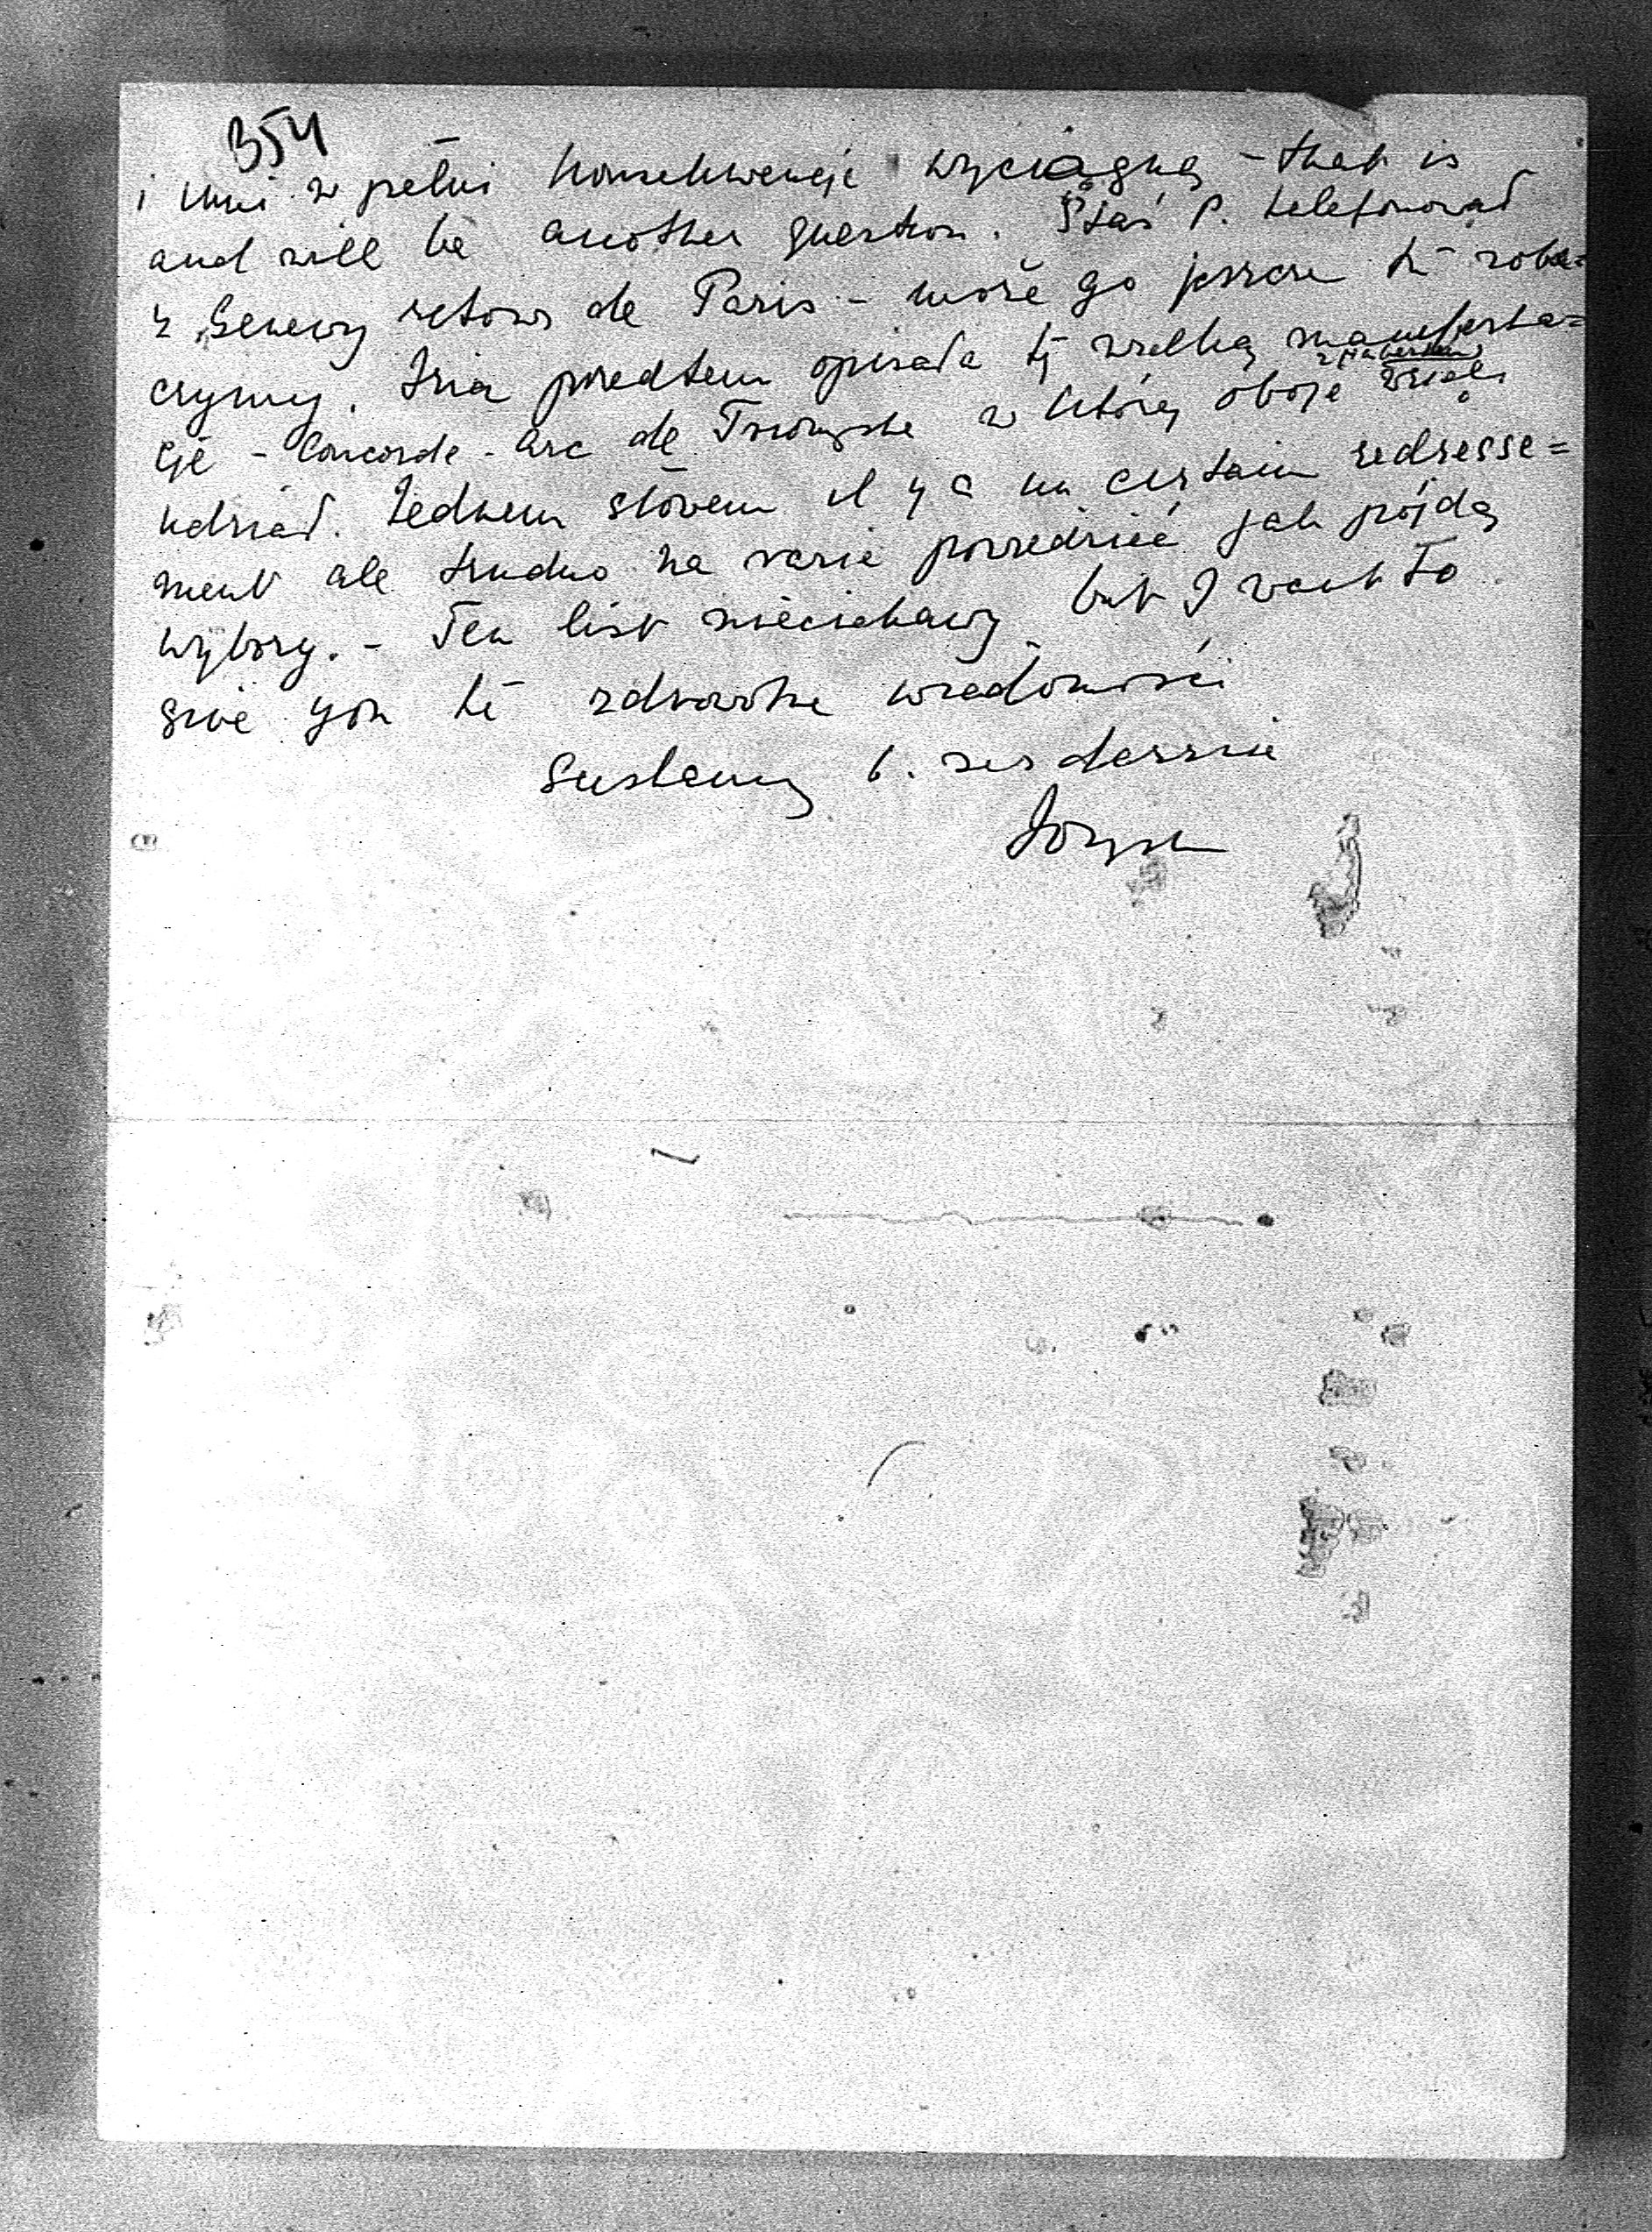 354
i inni w pełni konsekwencje wyciągną - that is
and will be another question. Staś P. telefonował
z Genewy retour de Paris - może go jeszcze tu zoba=
czymy. Inia przedtem opisała tę wielką manifesta=
cję - Concorde - Arc de Triomphe w której oboje wzięli
udział. Jednem słowem il y a un certain redresse=
ment ale trudno na razie powiedzieć jak pójdą
wybory. - Ten list nieciekawy but I want to
give you te zdrowotne wiadomości
Ściskamy b. serdecznie